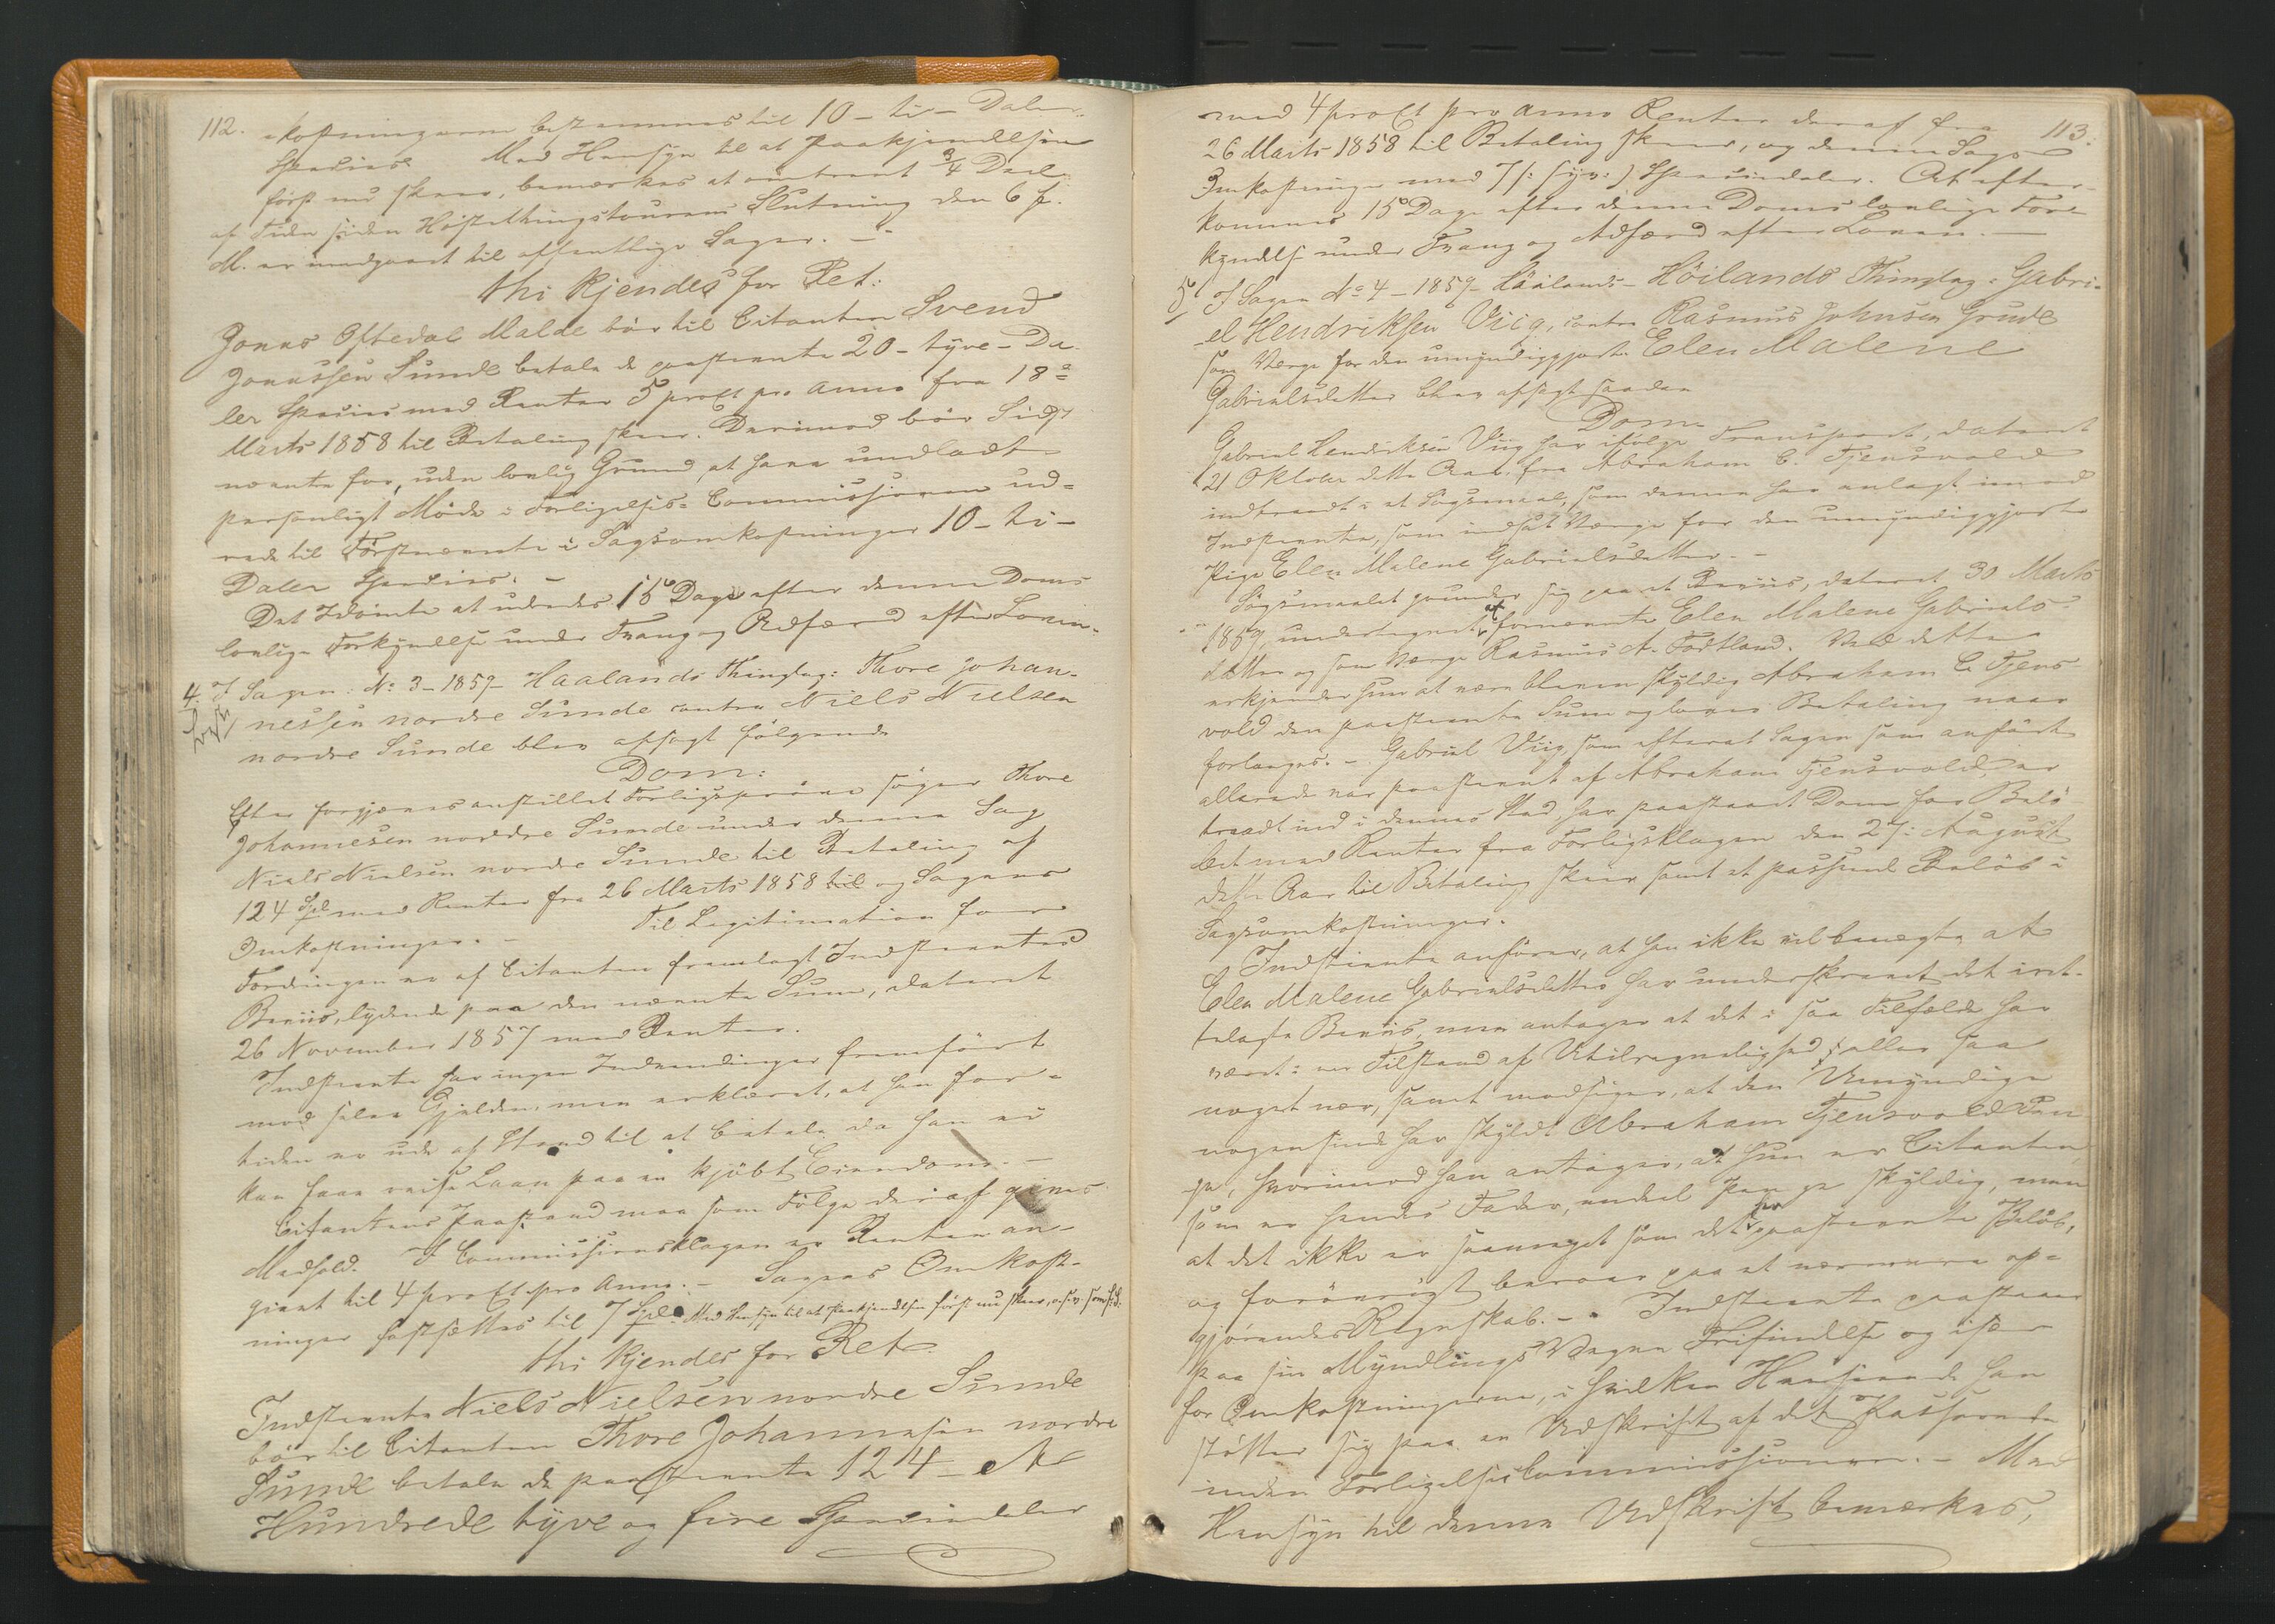 112.
-kostningerne bestemmes til 10 - ti - Daler
Species. Med Hensyn til at Paakjendelsen
først nu skeer, bemærkes at omtrent 3/4 Deel
af Tiden siden Høstethingstourens Slutning den 6 f.
M. er medgaaet til offentlige Sager. -
Thi kjendes for Ret:
Jonas Oftedal Malde bør til Citanten Svend
Jonassen Sunde betale de paastevnte 20 - tyve - Da-
ler Species med Renter 5 proCt pro anno fra 18de
Marts 1858 til Betaling skeer. Derimod bør Sidst-
nævnte for, uden lovlig Grund, at have undladt
personligt Møde i Forligelses-Commissionen ud-
rede til Førstnævnte i Sagsomkostninger 10 - ti -
Daler Species. -
Det Idømte at udredes 15 Dage efter denne Doms
lovlige Forkyndelse under Tvang og Adfærd efter Loven.
4. I Sagen: No 3 - 1859 - Haalands Thinglag: Thore Johan-
nessen nordre Sunde contra Niels Nielsen
nordre Sunde blev afsagt følgende
Dom:
Efter forgjæves anstillet Forligsprøve søger Thore
Johannesen nordre Sunde under denne Sag
Niels Nielsen nordre Sunde til Betaling af
124 Spd med Renter fra 26 Marts 1858 til og Sagens
Omkostninger. - Til Legitimation for
Fordringen er af Citanten fremlagt Indstevntes
Beviis, lydende paa den nævnte Sum, dateret
26 November 1857 med Renter.
Indstevnte har ingen Indvendinger fremført
mod selve Gjælden, men erklæret, at han for-
tiden er ude af Stand til at betale da han ei
kan faae reise Laan paa en kjøbt Eiendom. -
Citantens Paastand maa som Følge deraf gives
Medhold. I Commissionsklagen er Renten an-
givet til 4 proCt pro Anno. - Sagens Omkost-
ninger fastsættes til 7 Spd. Med Hensyn til at Paakjendelsen først nu skeer, o.s.v. som
Thi kjendes for Ret
Indstevnte Niels Nielsen nordre Sunde
bør til Citanten Thore Johannesen nordre
Sunde betale de paastevnte 124 - et
Hundrede tyve og fire Speciedaler
113.
med 4 proCt pro anno Renter deraf fra
26 Marts 1858 til Betaling skeer, og denne Sags
Omkostninger med 7 /: syv :/ Speciedaler. At efter-
kommes 15 Dage efter denne Doms lovlige For-
kyndelse under Tvang og Adfærd efter Loven. -
5 I Sagen No 4 - 1859 - Höilands Thinglag: Gabri-
el Hendriksen Viig, contra Rasmus Johnsen Grude
som Værge for den umyndiggjorte Elen Malene
Gabrielsdatter blev afsagt saadan
Dom
Gabriel Hendriksen Viig har ifølge Transport, dateret
21 Oktober dette Aar, fra Abraham C. Tjensvold
indtraadt i et Søgsmaal, som denne har anlagt imod
Indstevnte, som indsat Værge for den umyndiggjorte
Pige Elen Malene Gabrielsdatter. -
Søgsmaalet grunder sig paa et Beviis, dateret 30 Marts
1857, undertegnet af fornævnte Elen Malene Gabriels-
datter og som Værge Rasmus A. Fodtland. Ved dette
erkjender hun at være bleven skyldig Abraham C. Tjens-
vold den paastevnte Sum og lover Betaling naar
forlanges. - Gabriel Viig, som efterat Sagen som anført
allerede var paastevnt af Abraham Tjensvold, er
traadt ind i dennes Sted har paastaaet Dom for Belø-
bet med Renter fra Forligsklagen den 27: August
dette Aar til Betaling skeer samt et passende Beløb i
Sagsomkostninger.
Indstevnte anfører, at han ikke vil benægte at
Elen Malene Gabrielsdatter har underskrevet det iret-
telagte Beviis, men antager at det i saa Tilfælde har
været i en Tilstand af Utilregnelighed eller saa
noget nær, samt modsiger, at den Umyndige
nogensinde har skyldt Abraham Tjensvold Pen-
ge, hvorimod han antager, at hun er Citanten
som er hendes Fader, endeel Penge skyldig, men
at det ikke er saameget som det her paastevnte Beløb,
og forøvrigt beroer paa et nærmere op-
gjørendes Regnskab. - Indstevnte paastaaer
paa sin Myndlings Vegne Frifindelse og især
for Omkostningerne, i hvilken Henseende han
støtter sig paa en Udskrift af det Passerede
inden Forligelsescommissionen. - Med
Hensyn til denne Udskrift bemærkes,